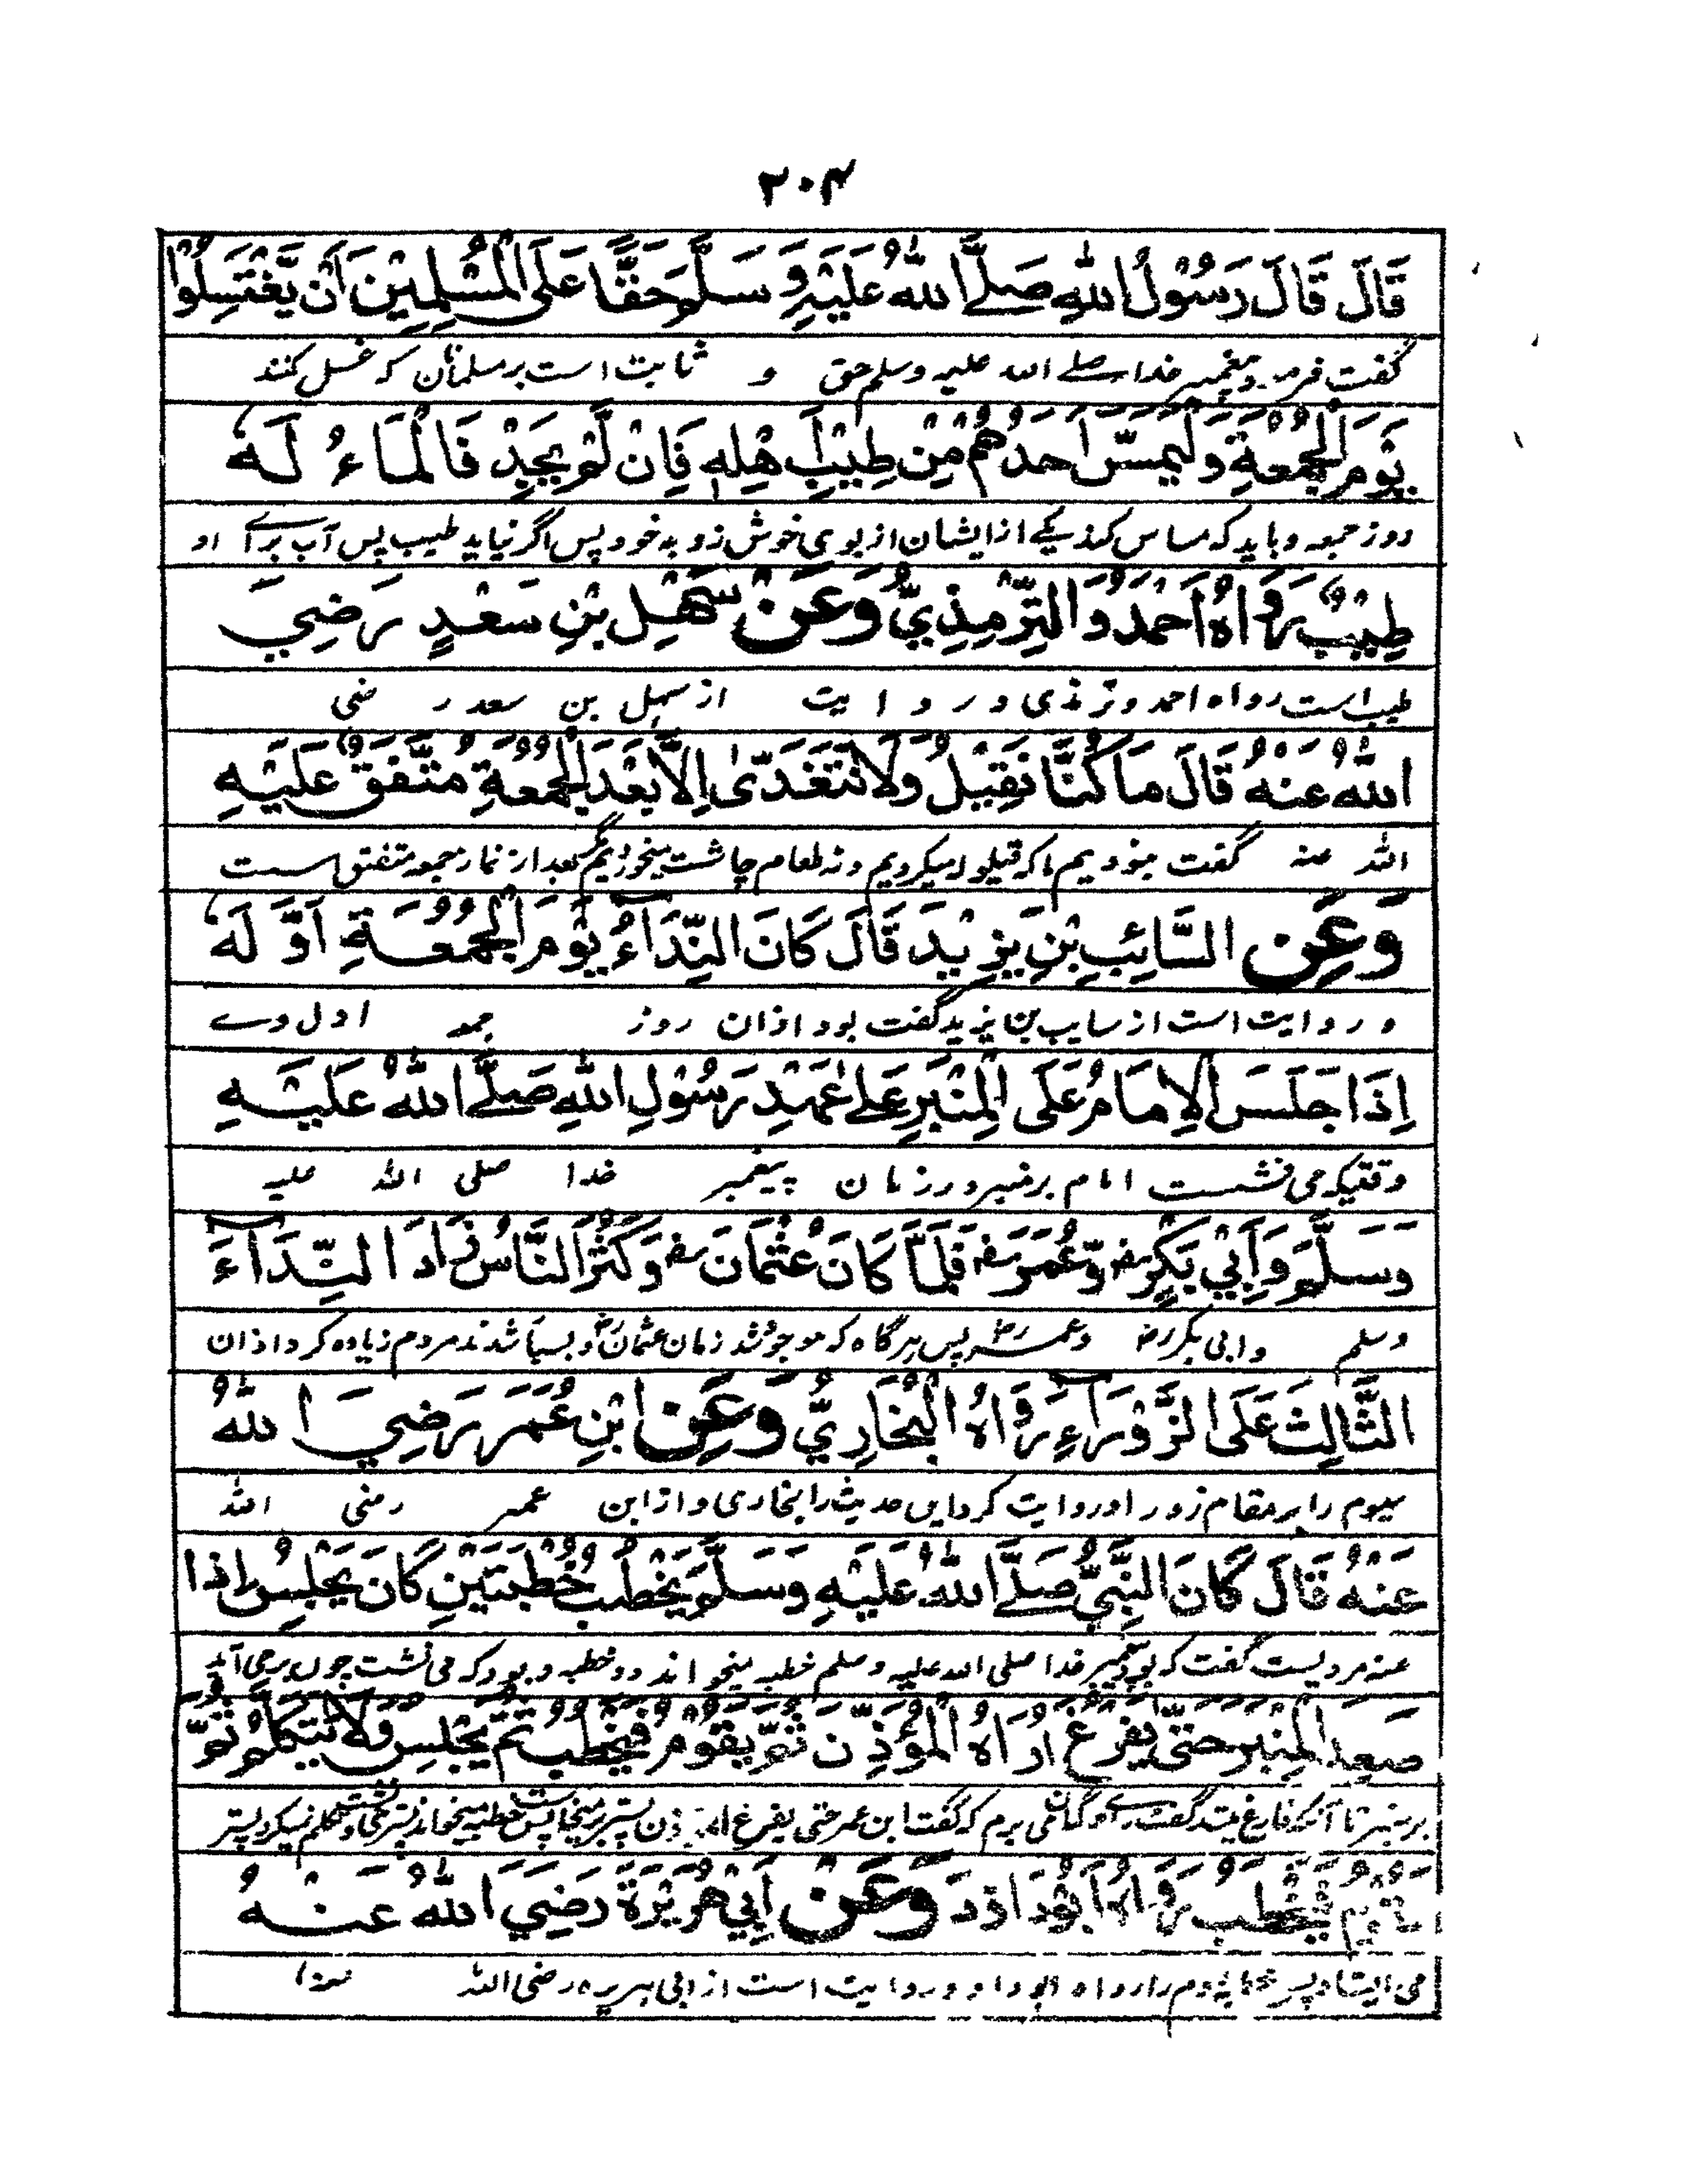 ۲۰۴
قَالَ قَالَ رَسُوْلُ اللهِ صَلَّے اللهُ عَلَيْهِ وَسَلَّمَ حَقًّا عَلَى الْمُسْلِمِيْنَ اَنْ يَّغْتَسِلُوْا
گفت فرمود پیغمبر خدا صلے الله علیه وسلم حق و ثابت است بر مسلمانان که غسل کنند
يَوْمَ الْجُمُعَةِ وَلْيَمَسَّ اَحَدُهُمْ مِنْ طِيْبِ اَهْلِهٖ فَاِنْ لَّمْ يَجِدْ فَالْمَاءُ لَهٗ
روز جمعه و باید که مساس کند یکے از ایشان از بوی خوش زوجه خود پس اگر نیابد طیب پس آب برائے او
طِيْبٌ رَوَاهُ اَحْمَدُ وَالتِّرْمِذِيُّ وَعَنْ سَهْلِ بْنِ سَعْدٍ رَضِيَ
طیب است رواه احمد و ترمذی و روایت از سهل بن سعد رضی
اللهُ عَنْهُ قَالَ مَا كُنَّا نَقِيْلُ وَلَا نَتَغَدّٰى اِلَّا بَعْدَ الْجُمُعَةِ مُتَّفَقٌ عَلَيْهِ
الله عنه گفت نبودیم ما که قیلوله میکردیم و نه طعام چاشت میخوردیم مگر بعد از نماز جمعه متفق ست
وَعَنِ السَّائِبِ بْنِ يَزِيْدَ قَالَ كَانَ النِّدَآءُ يَوْمَ الْجُمُعَةِ اَوَّلَهٗ
و روایت است از سایب بن یزید گفت بود اذان روز جمعه اول وے
اِذَا جَلَسَ الْاِمَامُ عَلَى الْمِنْبَرِ عَلٰے عَهْدِ رَسُوْلِ اللهِ صَلَّے اللهُ عَلَيْهِ
وقتیکه می نشست امام بر منبر در زمان پیغمبر خدا صلی الله علیه
وَسَلَّمَ وَاَبِيْ بَكْرٍ رض وَّعُمَرَ رض فَلَمَّا كَانَ عُثْمَانَ رض وَكَثُرَ النَّاسُ زَادَ النِّدَآءَ
وسلم و ابی بکر رض و عمر رض پس هرگاه که موجود شد زمان عثمان رض و بسیار شدند مردم زیاده کرد اذان
الثَّالِثَ عَلَى الزَّوْرَآءِ رَوَاهُ الْبُخَارِيُّ وَعَنِ ابْنِ عُمَرَ رَضِيَ اللهُ
سیوم را بر مقام زورا و روایت کرد ایں حدیث را بخاری و از ابن عمر رضی الله
عَنْهُ قَالَ كَانَ النَّبِيُّ صَلَّے اللهُ عَلَيْهِ وَسَلَّمَ يَخْطُبُ خُطْبَتَيْنِ كَانَ يَجْلِسُ اِذَا
عنه مرویست گفت که بود پیغمبر خدا صلی الله علیه وسلم خطبه میخواند دو خطبه و بود که می نشست چوں بر می آمد
صَعِدَ الْمِنْبَرَ حَتّٰى يَفْرُغَ اُرَاهُ الْمُؤَذِّنَ ثُمَّ يَقُوْمُ فَيَخْطُبُ ثُمَّ يَجْلِسُ وَلَا يَتَكَلَّمُ ثُمَّ
بر منبر تا آنکه فارغ میشد گفت گمان می برم که گفت ابن عمر حتی یفرغ پستر
يَقُوْمُ فَيَخْطُبُ رَوَاهُ اَبُوْ دَاوٗدَ وَعَنْ اَبِيْ هُرَيْرَةَ رَضِيَ اللهُ عَنْهُ
می ایستاد دوم را رواه ابو داود و روایت است از ابی هریره رضی الله